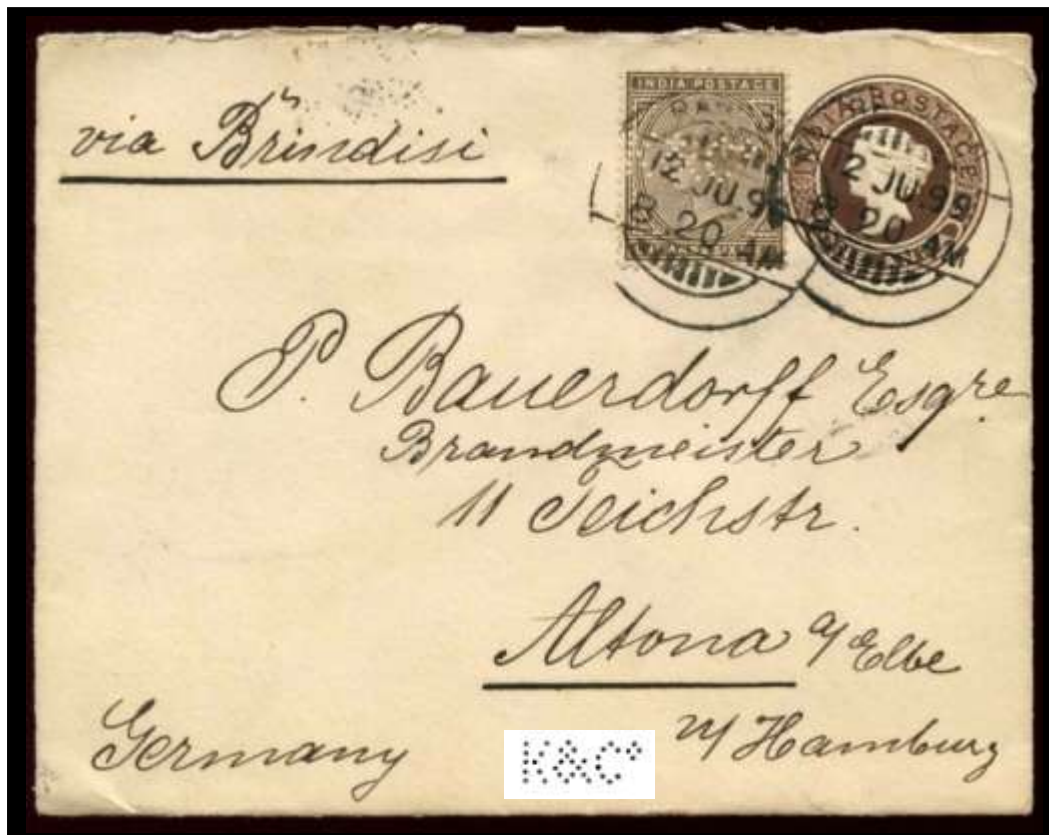 via Brindisi
INDIA POSTAGE
12 JU. 9
8 20 AM
INDIA POSTAGE
2 JU. 99
8 20 AM
P. Bauerdorff Esqre
Brandmeister
11 Teichstr.
Altona a/Elbe
Germany
K&Co
n/Hamburg